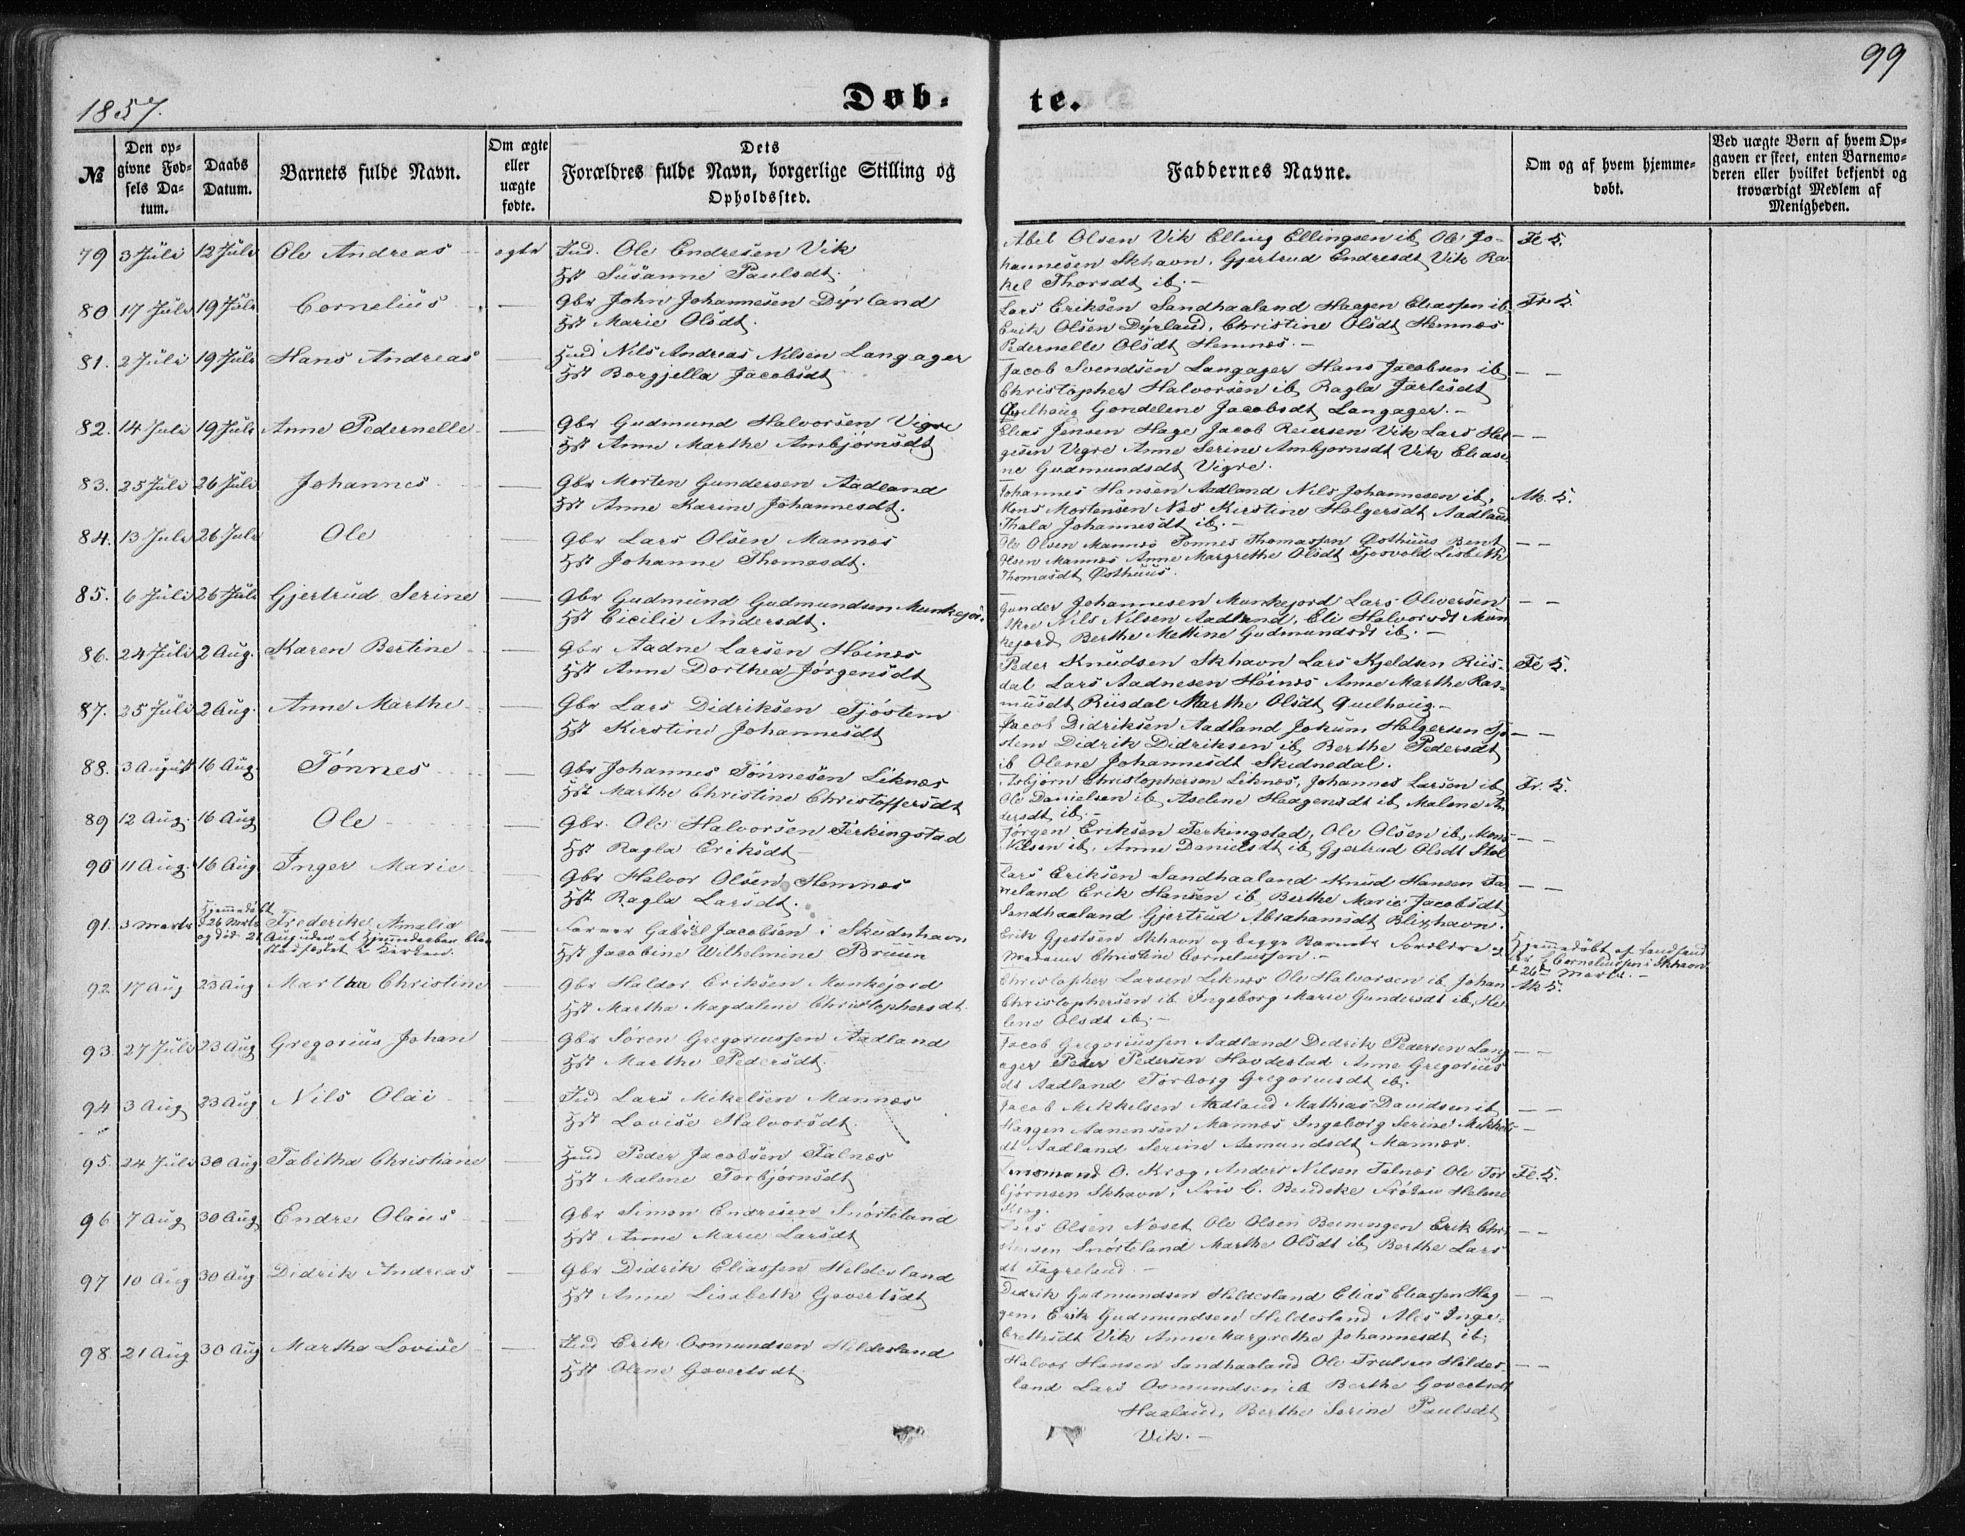 99
1857.
Døb-
te.
№
Den opgivne Fødsels Datum.
Daabs Datum.
Barnets fulde Navn.
Om ægte eller uægte fødte.
Dets Forældres fulde Navn, borgerlige Stilling og Opholdssted.
Faddernes Navne.
Om og af hvem hjemmedøbt.
Ved uægte Børn af hvem Opgaven er skeet, enten Barnemoderen eller hvilket bekjendt og troværdigt Medlem af Menigheden.
79 3 Juli 12 Juli Ole Andreas ægte Ind. Ole Endresen Vik
Hst Susanne Paulsdt.
Abel Olsen Vik Elling Ellingsen ib, Ole Jo-
hannesen Skhavn, Gjertrud Endresdt Vik Ra-
kel Thorsdt ib.
80 17 Juli 19 Juli Cornelius — Gbr John Johannesen Dyrland
Hst Marie Olsdt.
Lars Eriksen Sandhaaland Haagen Eliassen ib
Erik Olsen Dyrland, Christine Olsdt Hemnæs
Pedernelle Olsdt Hemnæs.
81. 2 Juli 19 Juli Hans Andreas — Nils Andreas Nilsen Langager
Hst Borgjella Jacobsdt
Jacob Svendsen Langager Hans Jacobsen ib — —
Christopher Halvorsen ib, Ragla Jarlesdt
Qvelhoug Gondelene Jacobsdt Langager.
82. 14 Juli 19 Juli Anne Pedernelle — Gbr Gudmund Halvorsen Vigre
Hst Anne Marthe Ambjørnsdt
Elias Jensen Hage Jacob Reiersen Vik Lars Hel- — —
gesen Vigre Anne Serine Ambjornsdt Vik Eliase
ne Gudmundsdt Vigre.
83. 25 Juli 26 Juli Johannes — Gbr Morten Gundersen Aadland
Hst Anne Karine Johannesdt.
Johannes Hansen Aadland Nils Johannesen ib,
Mons Mortensen Næs Kirstine Holgersdt Aadland
Thala Johannesdt ib.
84. 13 Juli 26 Juli Ole — Gbr Lars Olsen Mannes
Hst Johanne Thomasdt.
Ole Olsen Mannes Tønnes Thomassen Østhuus Bent — —
Olsen Mannes Anne Margrethe Olsdt Tjosvold Lisbeth
Thomasdt Østhuus.
85. 6 Juli 26 Juli Gjertrud Serine — Gbr Gudmund Gudmundsen Munkejor.
Hst Cicilie Andersdt.
Gunder Johannesen Munkejord Lars Oliversen — —
Nils Nilsen Aadland, Eli Halvorsdt Mun
kejord Berthe Mettine Gudmundsdt ib.
86. 24 Juli 2 Aug. Karen Bertine — Gbr Aadne Larsen Høinæs
Hst Anne Dorthea Jørgensdt
Peder Knudsen Skhavn Lars Kjeldsen Riis-
dal Lars Aadnesen Høinæs Anne Marthe Ras-
musdt Riisdal Marthe Olsdt Quelhoug
87. 25 Juli 2 Aug. Anne Marthe — Gbr Lars Didriksen Tjøstem
Hst Kirstine Johannesdt
Jacob Didriksen Aadland Jokum Holgersen Tjø — —
stem Didrik Didriksen ib, Berthe Pedersdt
ib Olene Johannesdt Skednedal.
88. 3 August 16 Aug. Tønnes — Gbr Johannes Tønnesen Liknæs
Hst Marthe Christine Christoffersdt
Asbjørn Christophersen Liknæs, Johannes Larsen ib
Ole Danielsen ib, Aselene Haagensdt ib, Malene An
dersdt ib.
89 12 Aug. 16 Aug Ole — Gbr. Ole Halvorsen Ferkingstad
Hst Ragla Eriksdt
Jørgen Eriksen Ferkingstad, Ole Olsen ib, Mons — —
Nilsen ib, Anne Danielsdt ib, Gjertrud Olsdt Stol
90 11 Aug. 16 Aug Inger Marie — Gbr Halvor Olsen Hemnæs
Hst Ragla Larsdt.
Lars Eriksen Sandhaaland Knud Hansen — —
Erik Hansen ib Berthe Marie Jacobsdt
Sandhaaland Gjertrud Abrahamsdt Blixhavn.
91. 3 Marts Hjemmedøbt 26 Marts Frederike Amalia — Farver Gabriel Jacobsen i Skudenhavn
Hst Jacobine Wilhelmine Bruun
Erik Gjestsen Skhavn og begge Barnets Forældre og
Madame Christine Corneliussen.
Corneliussen i Skhavn
26de Marts.
92 17 Aug 23 Aug Martha Christine — Gbr Haldor Eriksen Munkejord
Hst Martha Magdalene Christophersdt
Christopher Larsen Liknæs Ole Halvorsen ib, Johan
Christophersen ib Ingeborg Marie Gundersdt ib, He
lene Olsdt ib.
93. 27 Juli 23 Aug Gregorius Johan — Gbr Søren Gregoriussen Aadland
Hst Marthe Pedersdt.
Jacob Gregoriussen Aadland Didrik Pedersen Lang — —
ager Peder Pedersen Hovdestad Anne Gregorius
dt Aadland Torborg Gregoriusdt ib.
94 3 Aug 23 Aug Nils Olai — Ind Lars Mikelsen Mannes
Hst Lovise Halvorsdt.
Jacob Mikkelsen Aadland Mathias Davidsen ib — —
Haagen Aanensen Mannes Ingeborg Serine Mikkels
dt Aadland Serine Asmundsdt Mannes.
95. 24 Juli 30 Aug Tabitha Christiane — Peder Jacobsen Falnæs
Hst Malene Torbjørnsdt
O. Krog, Anders Nilsen Falnæs Ole Tor
bjørnsen Skhavn, C. Bendeke Frøken Helene
Krog.
96 7 Aug 30 Aug Endre Olaus — Gbr Simon Endresen Snørteland
Hst Anne Marie Larsdt
Lars Olsen Næset Ole Olsen Beiningen Erik — —
Snørteland Marthe Olsdt ib, Berthe Lars
dt Fagreland.
97 10 Aug 30 Aug Didrik Andreas — Gbr Didrik Eliassen Hildesland
Hst Anne Lisabeth Govertsdt
Didrik Gudmundsen Hildesland Elias Eliassen — —
Erik Gudmundsen Hildesland Inge-
bretsdt Vik Anne Margrethe Johannesdt ib.
98. 21 Aug 30 Aug Martha Lovise — Ind Erik Osmundsen Hildesland
Hst Olene Govertsdt
Halvor Hansen Sandhaaland Ole Trulsen Hildes- — —
land Lars Osmundsen ib Berthe Govertsdt
Haaland, Berthe Serine Paulsdt
Vik.